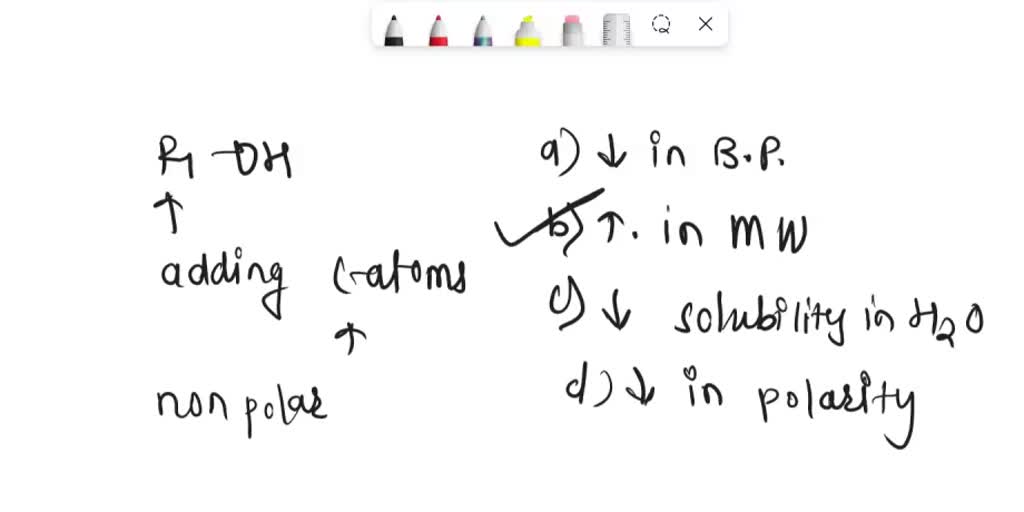 R-OH
↑
adding C-atoms
↑
nonpolar
a) ↓ in B.P.
b) ↑. in MW
c) ↓ solubility in H2O
d) ↓ in polarity